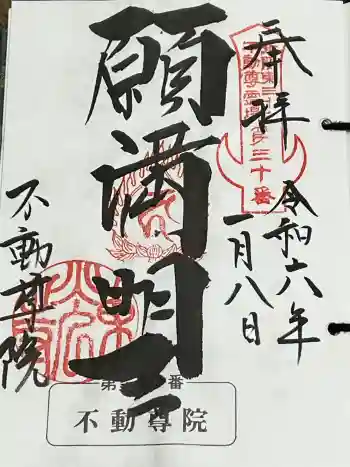 奉拝
令和六年
一月八日
願満明王
不動尊院
三十番
第 番
不動尊院